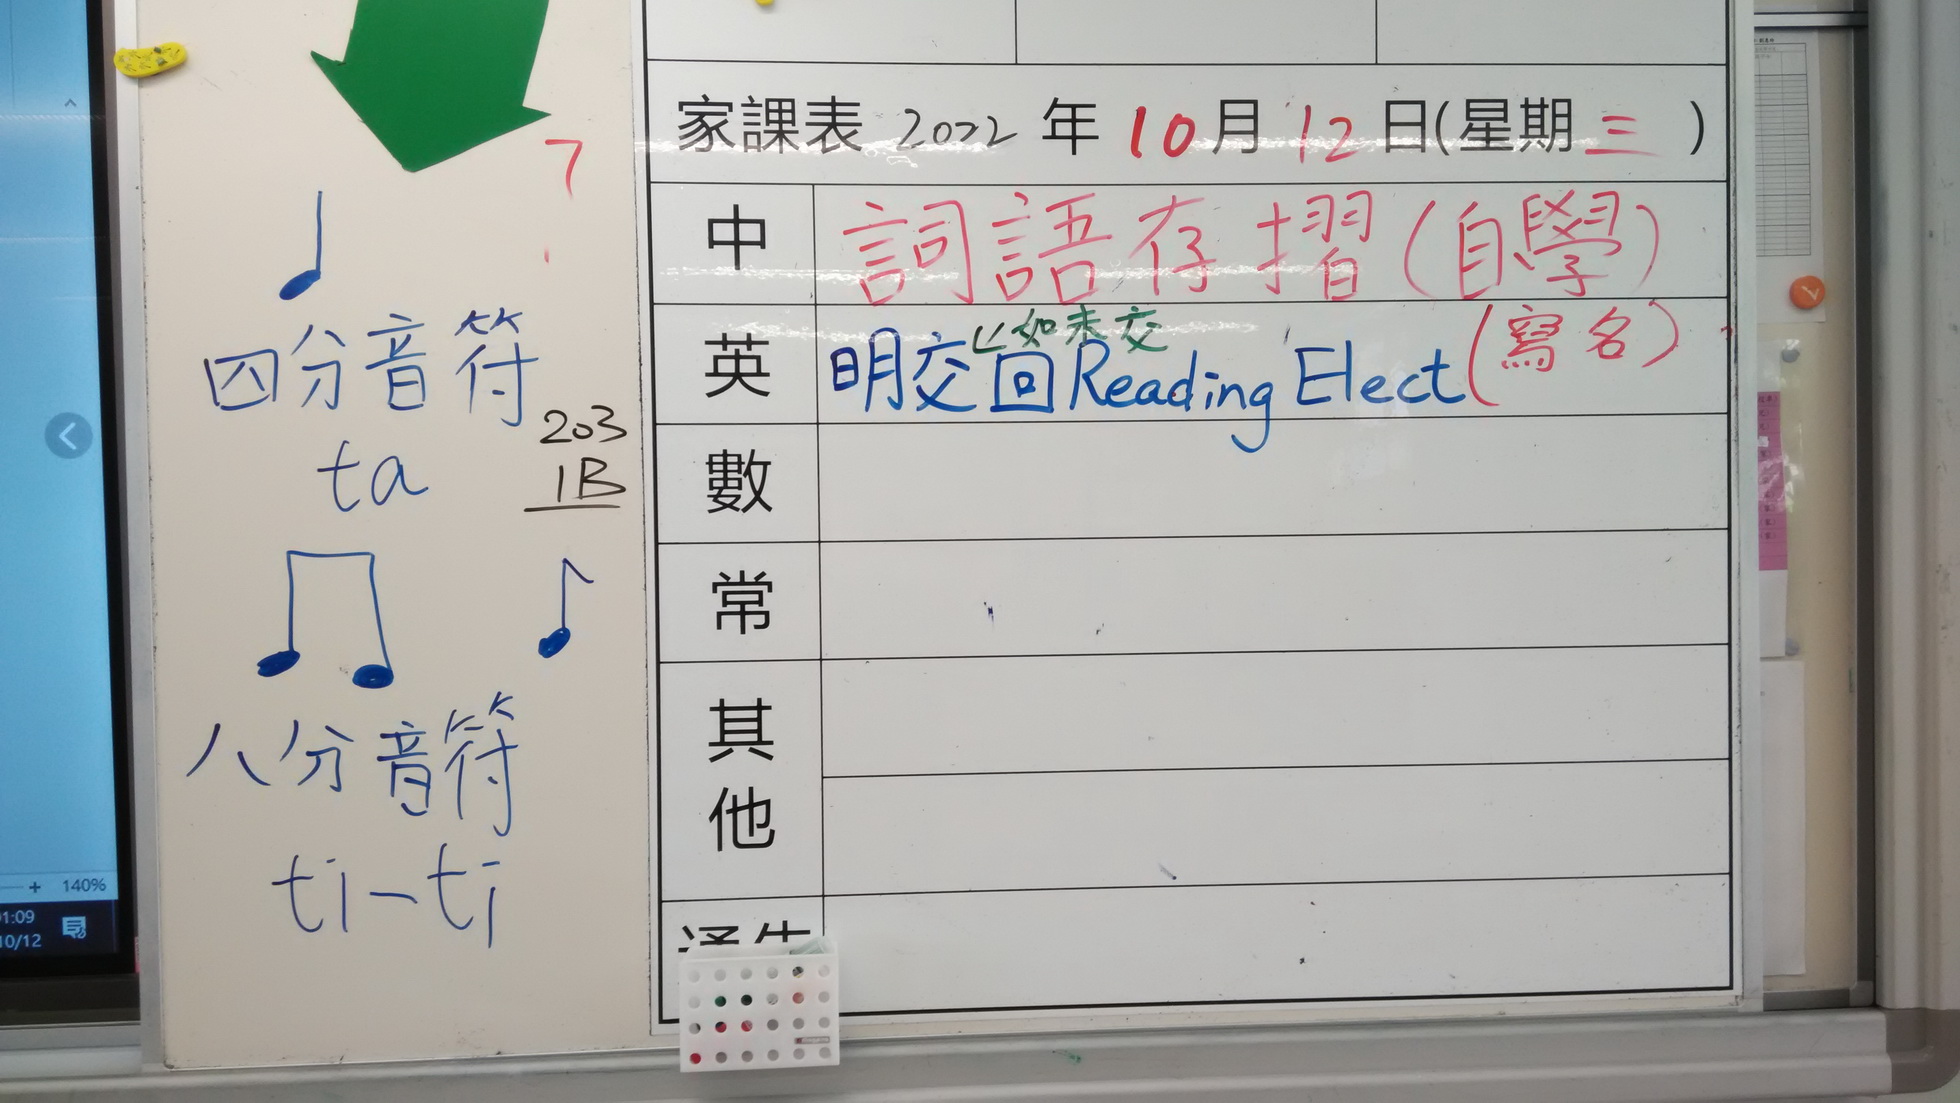 家課表 2022 年 10月 12 日(星期 三 )
中 詞語存摺(自學)
如未交
英 明交回Reading Elect(寫名)
數
常
其他
通告
7
四分音符
ta
203
1B
八分音符
ti-ti
140%
1:09
10/12